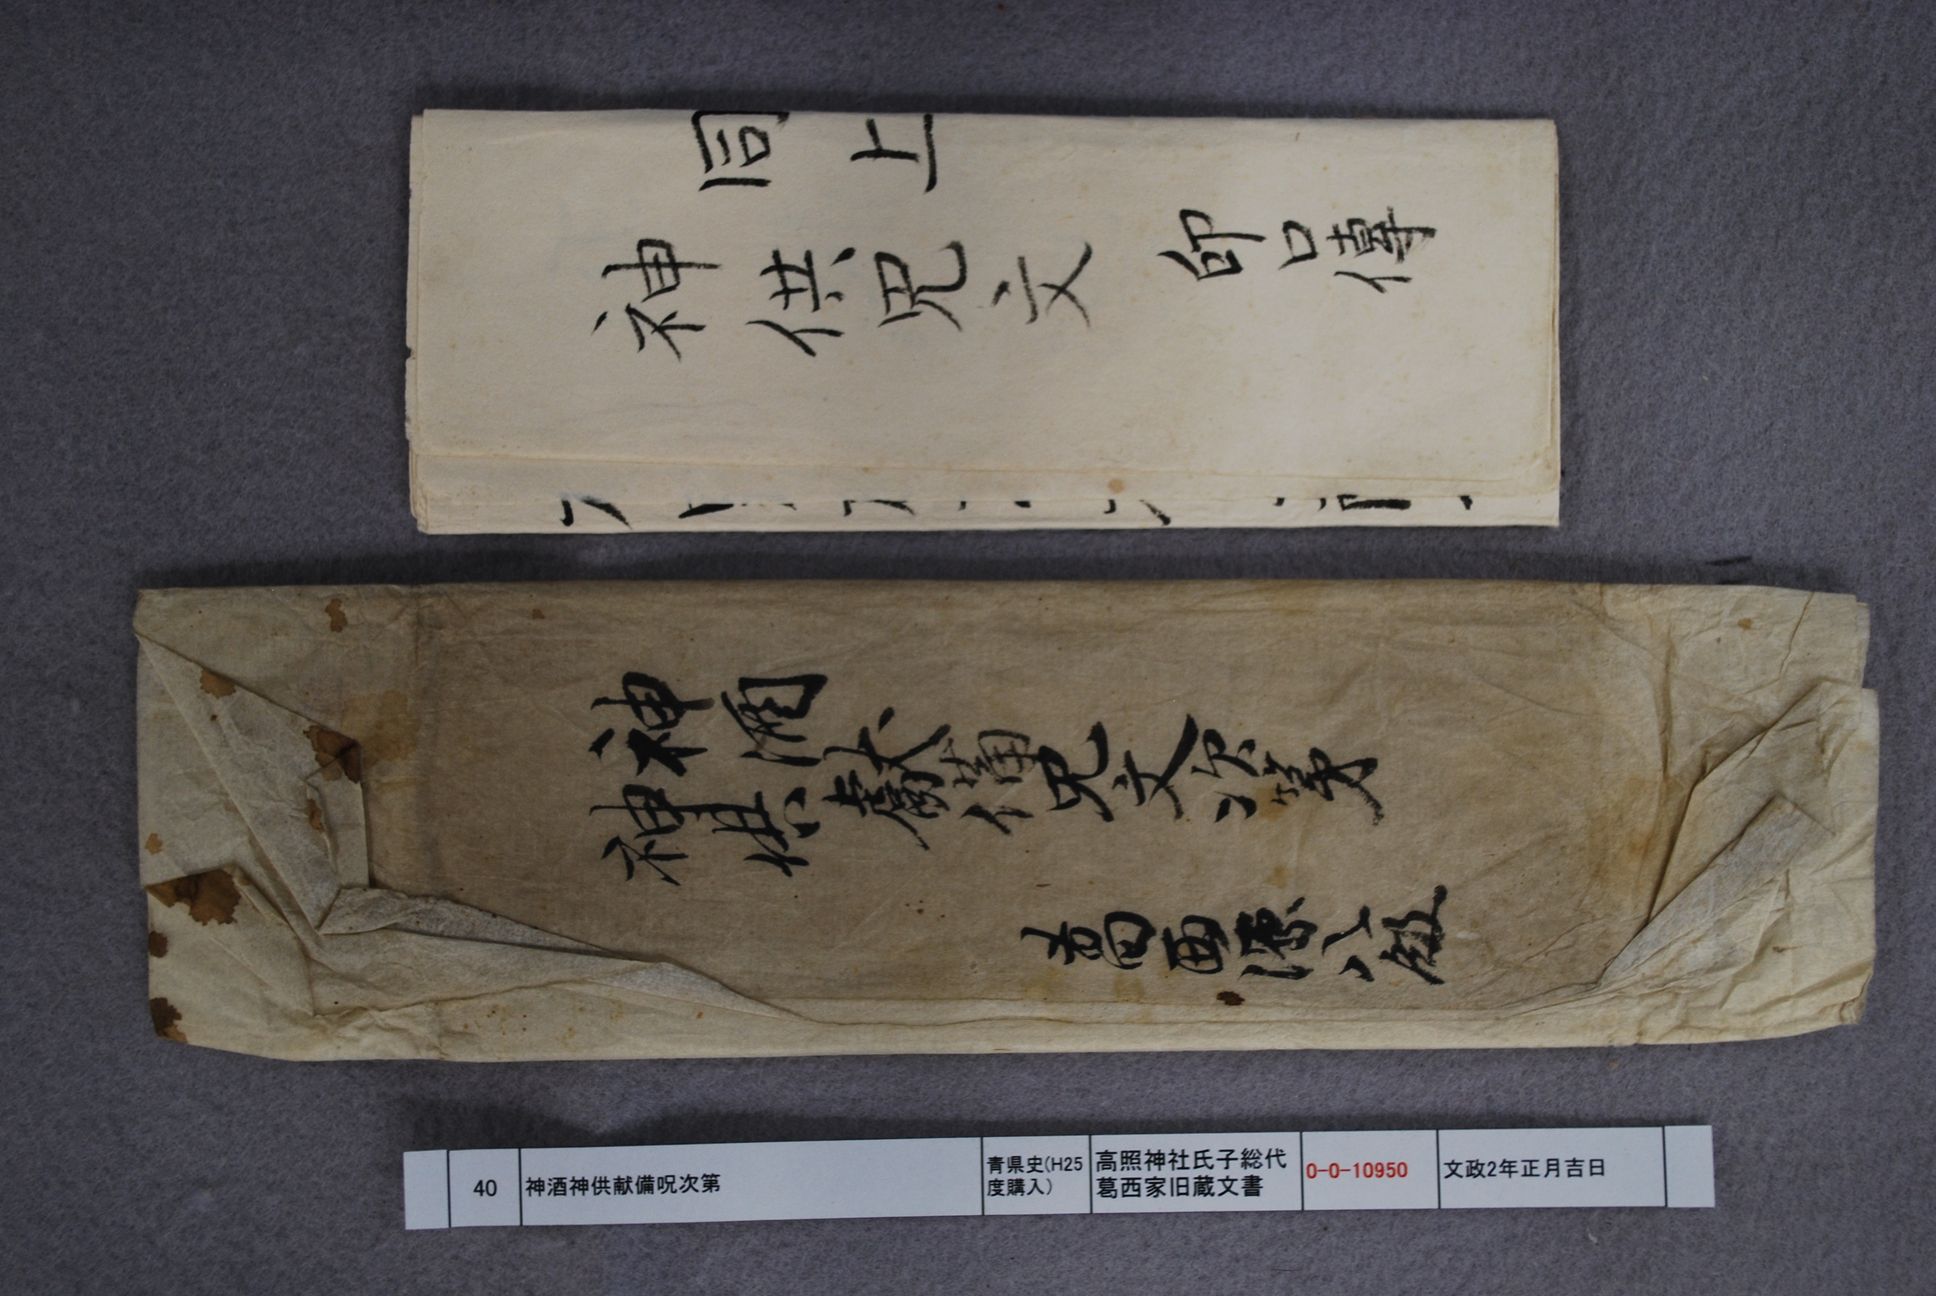 同上
神供呪文
師口傳
神酒
神供
獻備呪文次第
葛西
40
神酒神供献備呪次第
青県史(H25
度購入)
高照神社氏子総代
葛西家旧蔵文書
0-0-10950
文政2年正月吉日